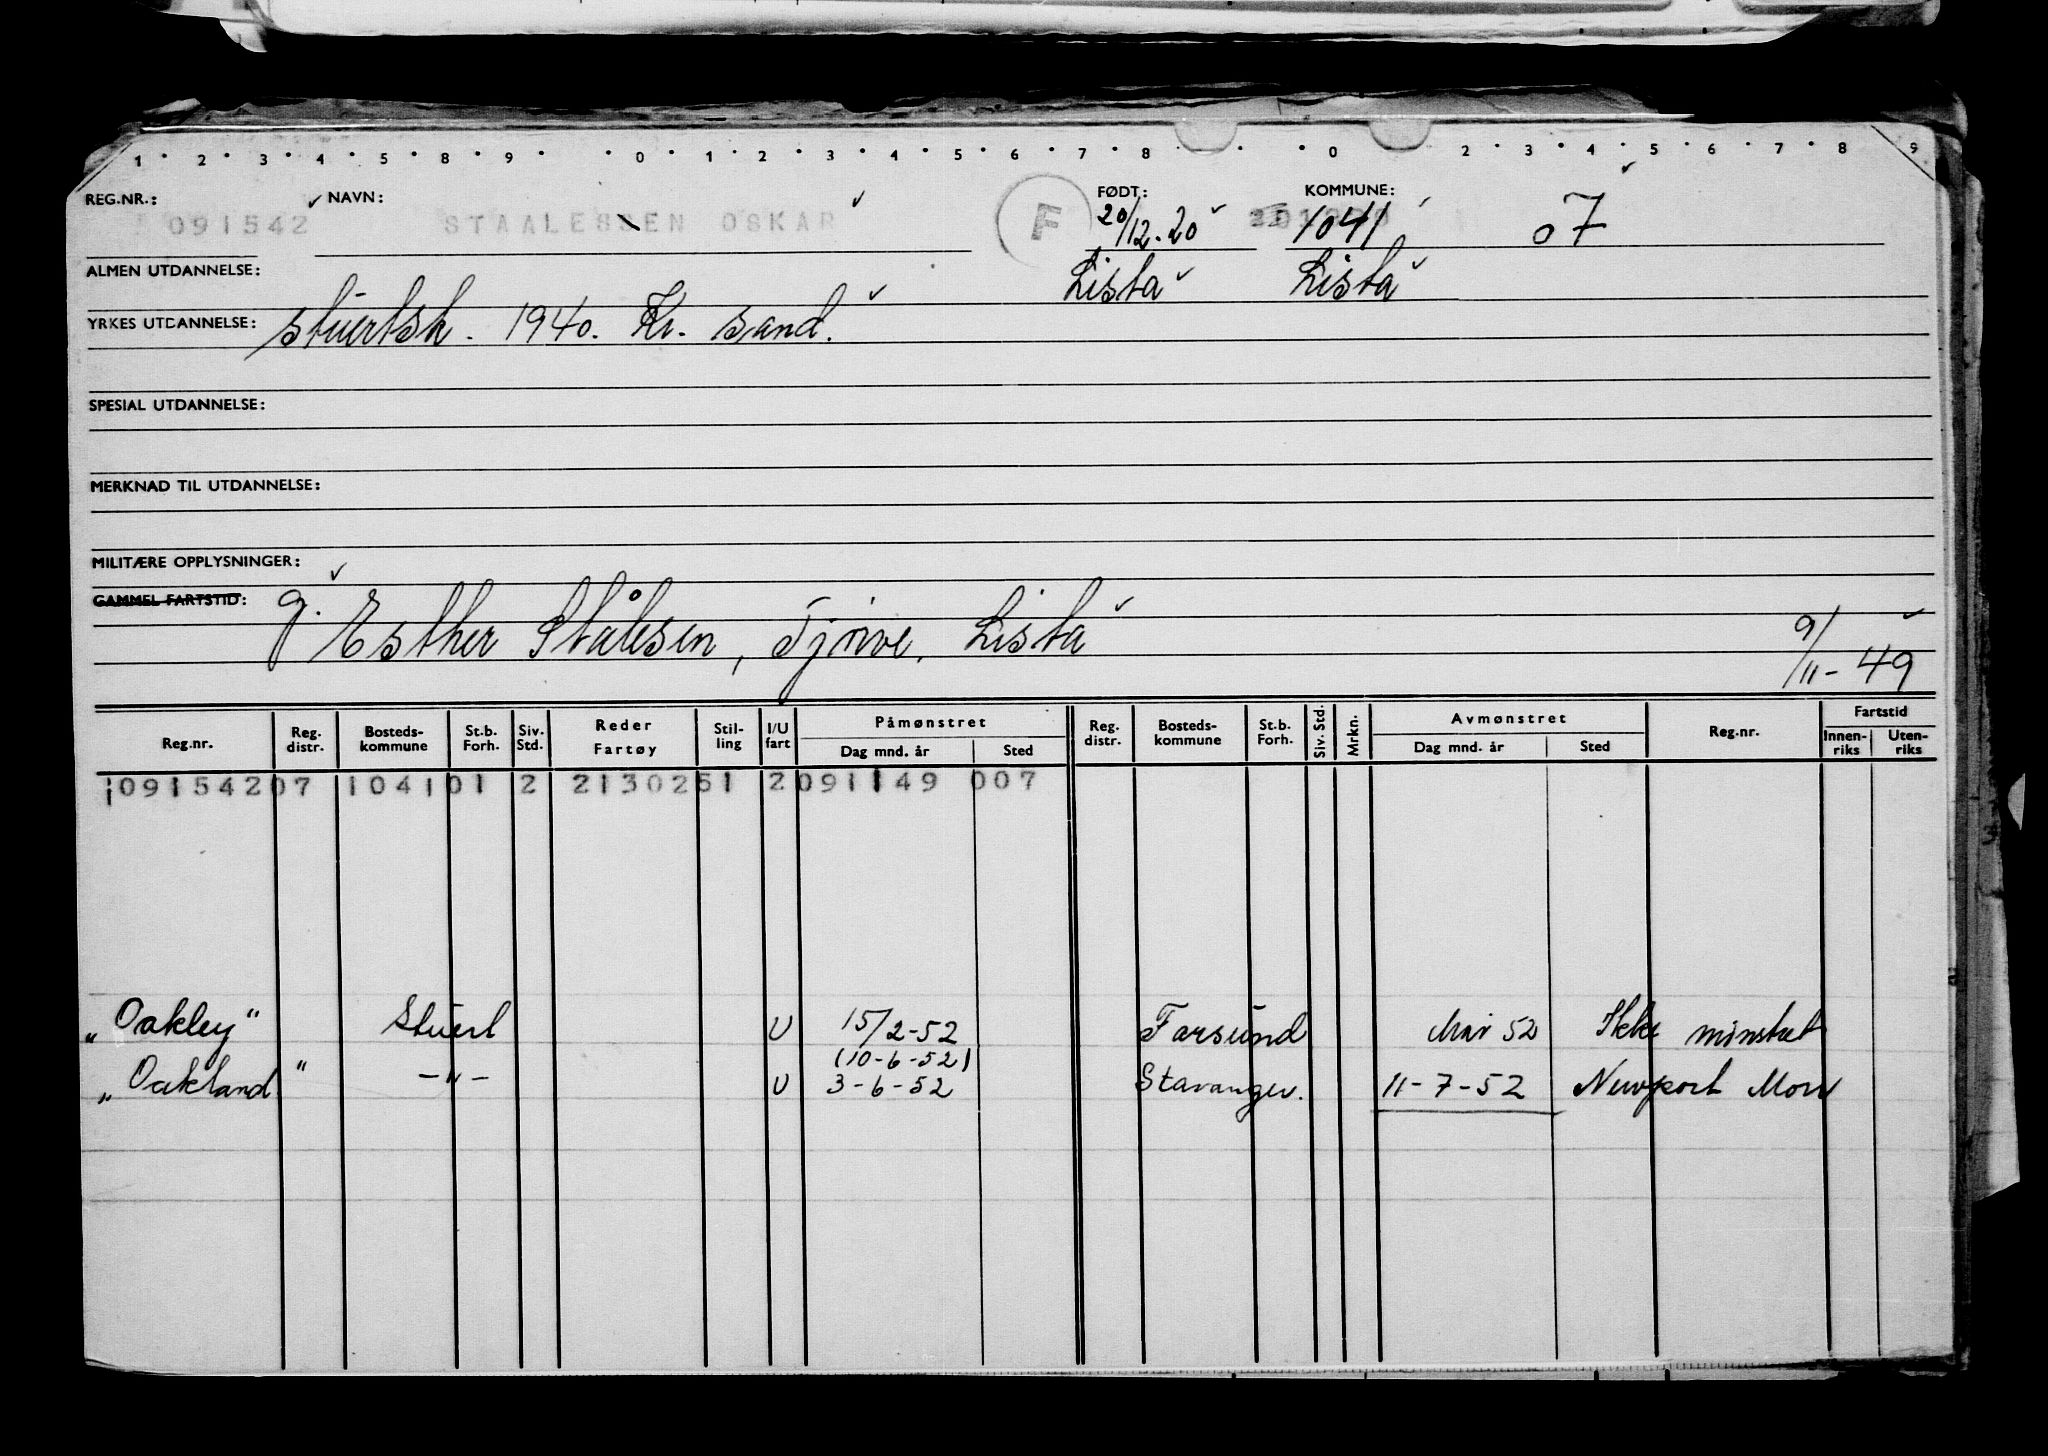 1 2 3 4 5 8 9 0 1 2 3 4 5 6 7 8 0 2 3 4 5 6 7 8 9
REG.NR.: NAVN: FØDT: KOMMUNE:
091542 STAALESSEN OSKAR F 20/12.20 1041 07
ALMEN UTDANNELSE: Lista Lista
YRKES UTDANNELSE: stuertsk. 1940. Kr. sand.
SPESIAL UTDANNELSE:
MERKNAD TIL UTDANNELSE:
MILITÆRE OPPLYSNINGER:
GAMMEL FARTSTID: g. Esther Stålesen, Tjørve, Lista 9/11-49
Reg.nr. Reg. distr. Bosteds-kommune St.b. Forh. Siv. Std. Reder Fartøy Stil-ling I/U fart Påmønstret Dag mnd. år Sted Reg. distr. Bosteds-kommune St.b. Forh. Siv. Std. Mrkn. Avmønstret Dag mnd. år Sted Reg.nr. Fartstid Innen-riks Uten-riks
09154207 104101 2 2130251 2091149 007
„Oakley" Stuert U 15/2-52 Farsund Mai 52 Ikke mønstret
(10-6-52)
„Oakland" -"- U 3-6-52 Stavanger. 11-7-52 Newport Mon